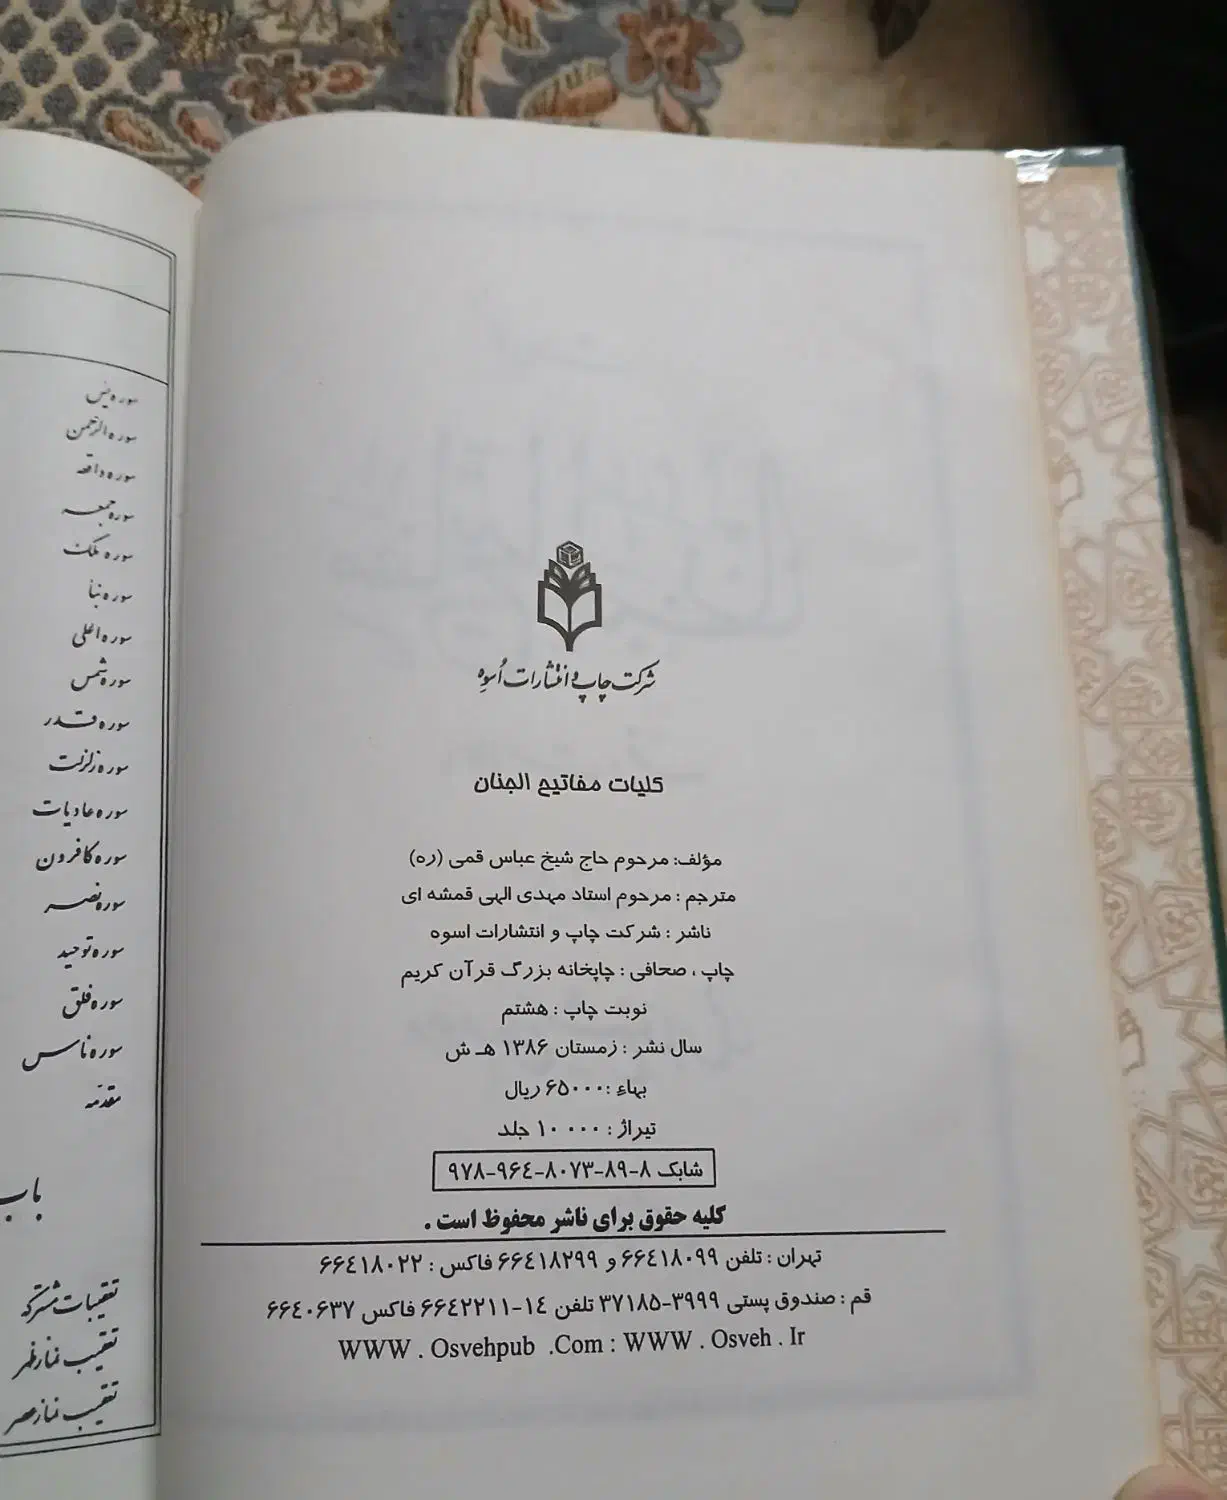 شرکت چاپ و انتشارات اُسوه
کلیات مفاتیح الجنان
مؤلف: مرحوم حاج شیخ عباس قمی (ره)
مترجم : مرحوم استاد مهدی الهی قمشه ای
ناشر : شرکت چاپ و انتشارات اسوه
چاپ ، صحافی : چاپخانه بزرگ قرآن کریم
نوبت چاپ : هشتم
سال نشر : زمستان ۱۳۸۶ هـ ش
بهاء :۶۵۰۰۰ ریال
تیراژ : ۱۰۰۰۰ جلد
شابک ۸-۸۹-۸۰۷۳-۹۶٤-۹۷۸
کلیه حقوق برای ناشر محفوظ است .
تهران : تلفن ۶۶٤۱۸۰۹۹ و ۶۶٤۱۸۲۹۹ فاکس : ۶۶٤۱۸۰۲۲
قم : صندوق پستی ۳۹۹۹-۳۷۱۸۵ تلفن ۱٤-۶۶٤۲۲۱۱ فاکس ۶۶٤۰۶۳۷
WWW . Osvehpub .Com : WWW . Osveh . Ir
سوره یس
سوره الرحمن
سوره واقعه
سوره جمعه
سوره ملک
سوره نبأ
سوره اعلی
سوره شمس
سوره قدر
سوره زلزلت
سوره عادیات
سوره کافرون
سوره نصر
سوره توحید
سوره فلق
سوره ناس
مقدمه
باب
تعقیبات مشترکه
تعقیب نماز ظهر
تعقیب نماز عصر